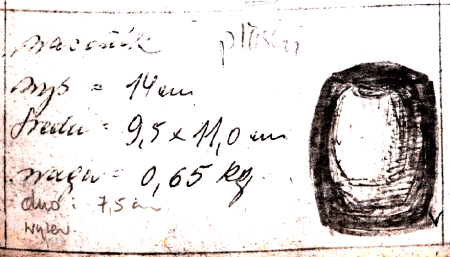 wazonik płaski
wys = 14 cm
średn = 9,5 x 11,0 cm
waga = 0,65 kg
dno : 7,5 cm
wylew